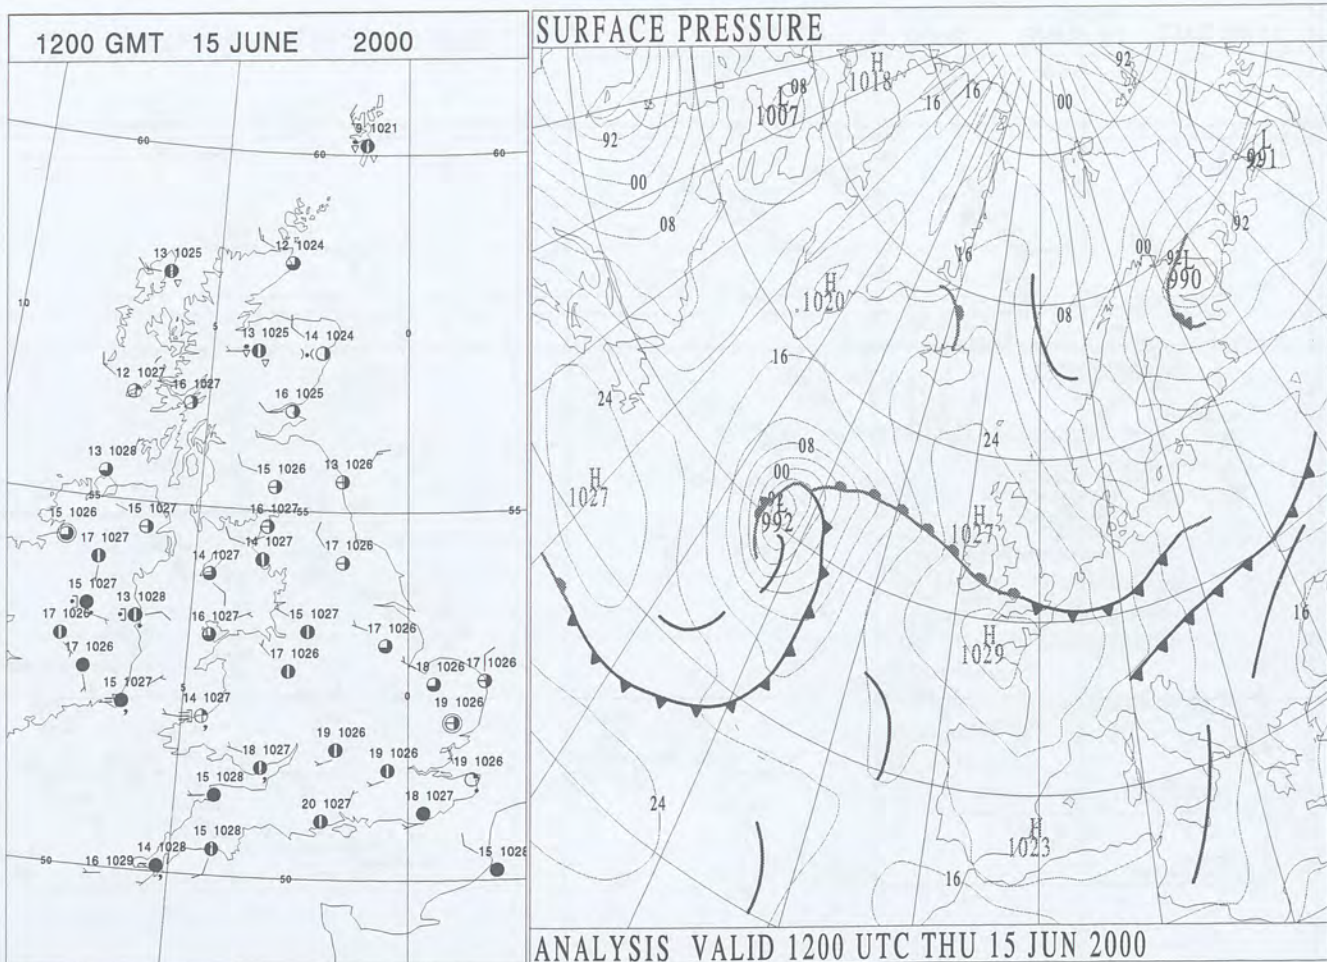 1200 GMT 15 JUNE 2000
9 1021
60
60
60
12 1024
13 1025
10
5
0
13 1025
14 1024
12 1027
16 1027
16 1025
13 1028
15 1026
13 1026
55
15 1026
15 1027
16 1027
55
55
17 1027
14 1027
14 1027
17 1026
15 1027
13 1028
17 1026
16 1027
15 1027
17 1026
17 1026
17 1026
18 1026
17 1026
15 1027
5
14 1027
0
19 1026
18 1027
19 1026
19 1026
19 1026
15 1028
20 1027
18 1027
15 1028
14 1028
16 1029
50
50
15 1028
SURFACE PRESSURE
H
1018
L
08
1007
16
16
00
92
92
L
991
00
08
92
16
00
92
L
990
H
1020
08
16
24
08
24
00
H
1027
L
992
H
1027
16
H
1029
24
H
1023
16
ANALYSIS VALID 1200 UTC THU 15 JUN 2000